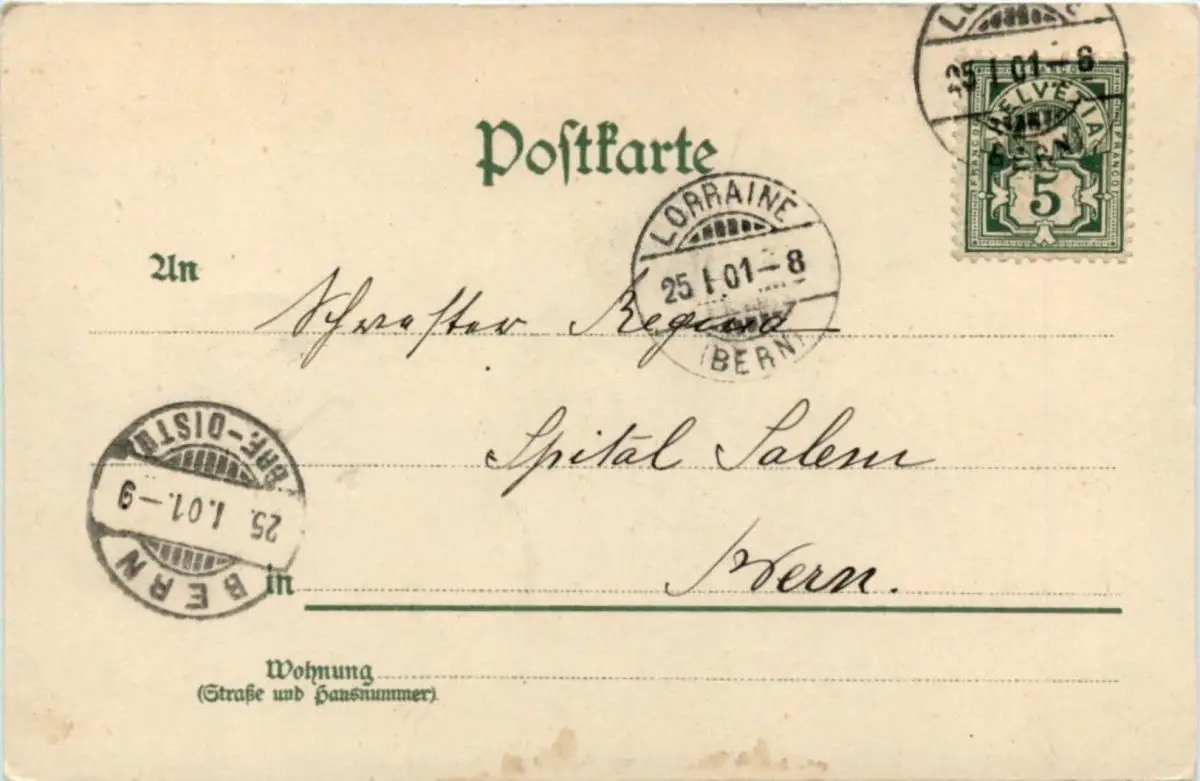 LO
25 I 01-8
BERN
FRANCO
HELVETIA
FRANCO
FRANCO
5
Postkarte
LORRAINE
25 I 01-8
(BERN)
An
Schwester Regina
Spital Salem
BRE-DISTR
25. I. 01.-9
BERN
in Bern.
Wohnung
(Straße und Hausnummer)